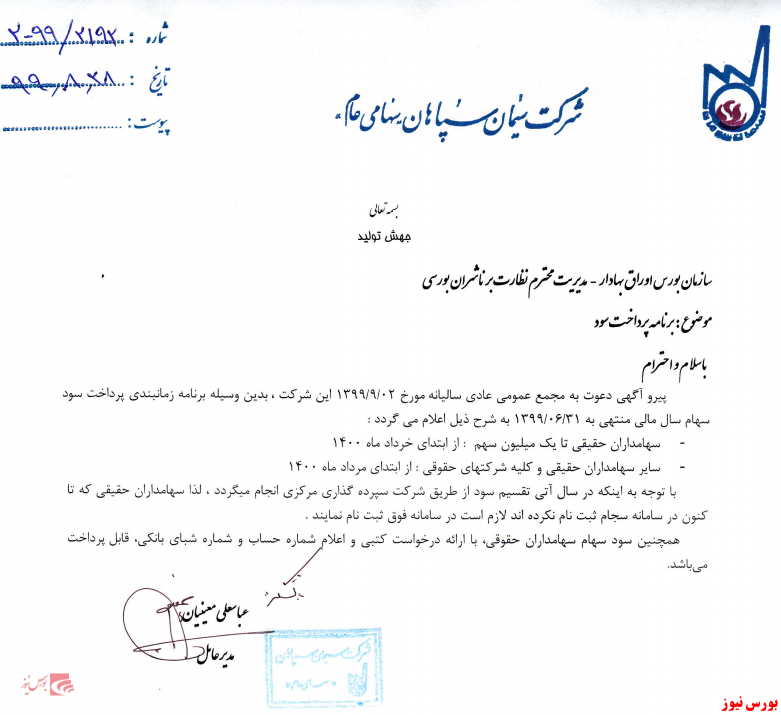 شماره : ۲-۹۹/۲۱۹۲
تاریخ : ۹۹،۸،۲۸
پیوست:
شرکت سیمان سپاهان «سهامی عام»
بسمه تعالی
جهش تولید
سازمان بورس اوراق بهادار - مدیریت محترم نظارت بر ناشران بورسی
موضوع : برنامه پرداخت سود
باسلام و احترام
پیرو آگهی دعوت به مجمع عمومی عادی سالیانه مورخ ۱۳۹۹/۹/۰۲ این شرکت ، بدین وسیله برنامه زمانبندی پرداخت سود
سهام سال مالی منتهی به ۱۳۹۹/۰۶/۳۱ به شرح ذیل اعلام می گردد :
- سهامداران حقیقی تا یک میلیون سهم : از ابتدای خرداد ماه ۱۴۰۰
- سایر سهامداران حقیقی و کلیه شرکتهای حقوقی : از ابتدای مرداد ماه ۱۴۰۰
با توجه به اینکه در سال آتی تقسیم سود از طریق شرکت سپرده گذاری مرکزی انجام میگردد ، لذا سهامداران حقیقی که تا
کنون در سامانه سجام ثبت نام نکرده اند لازم است در سامانه فوق ثبت نام نمایند .
همچنین سود سهام سهامداران حقوقی، با ارائه درخواست کتبی و اعلام شماره حساب و شماره شبای بانکی، قابل پرداخت
می‌باشد.
عباسعلی معینیان
مدیرعامل
شرکت سیمان سپاهان
بورس نیوز
بورس نیوز